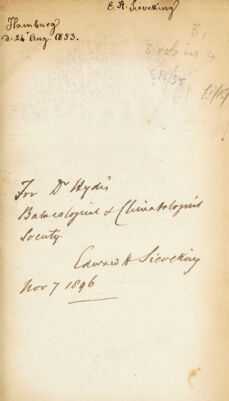 E. H. Sieveking
Hamburg
d. 24 Aug. 1853.
3 vols in 4
For Dr Hyde's
Balneological & Climatological
Society.
Edward H Sieveking
Nov 7 1896